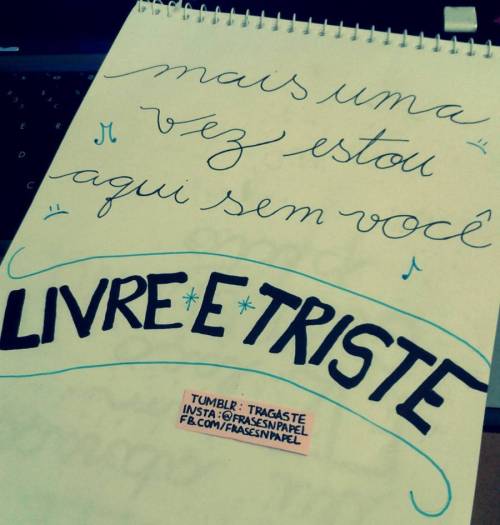 mais uma
vez estou
aqui sem você
LIVRE * E * TRISTE
TUMBLR: TRAGASTE
INSTA: @FRASESNPAPEL
FB.COM/FRASESNPAPEL